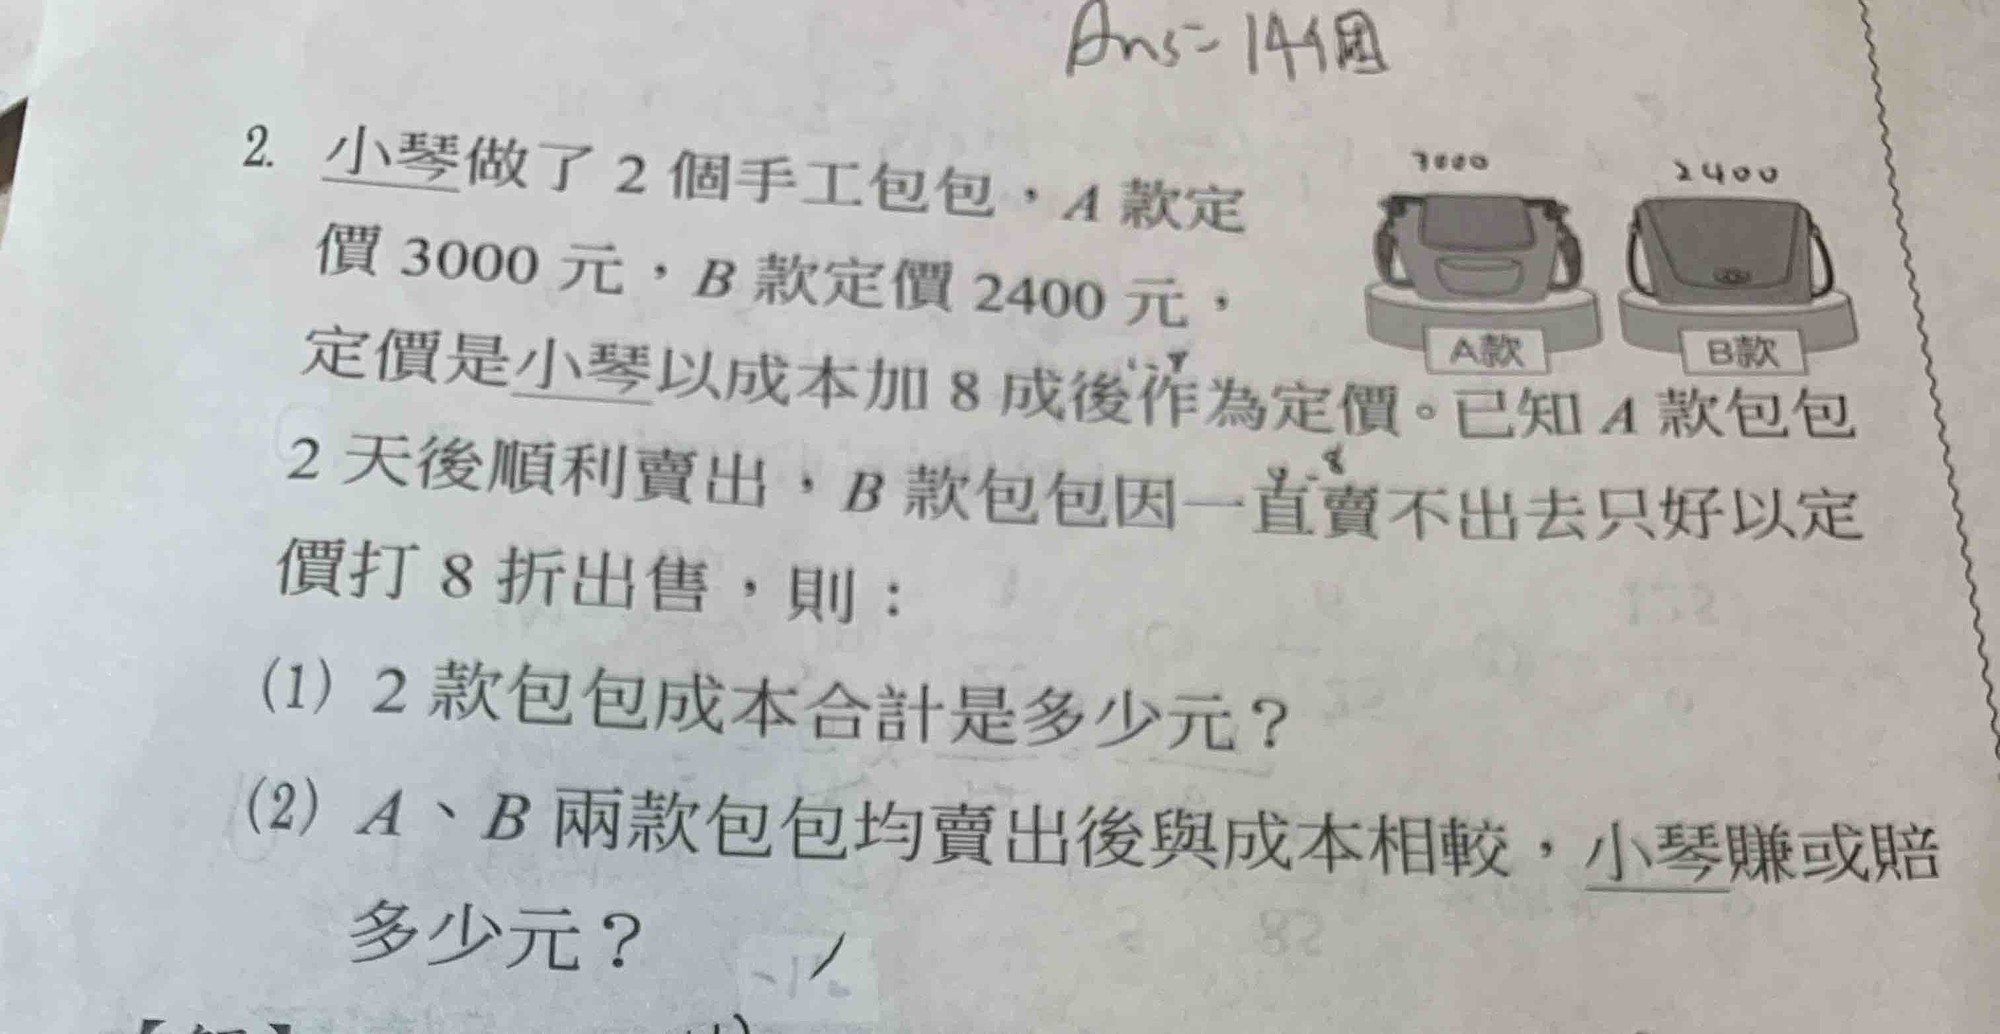 Ans= 144個
2. 小琴做了 2 個手工包包，A 款定
價 3000 元，B 款定價 2400 元，
定價是小琴以成本加 8 成後作為定價。已知 A 款包包
2 天後順利賣出，B 款包包因一直賣不出去只好以定
價打 8 折出售，則：
(1) 2 款包包成本合計是多少元？
(2) A、B 兩款包包均賣出後與成本相較，小琴賺或賠
多少元？
3000
2400
A款
B款
1.8
0.8